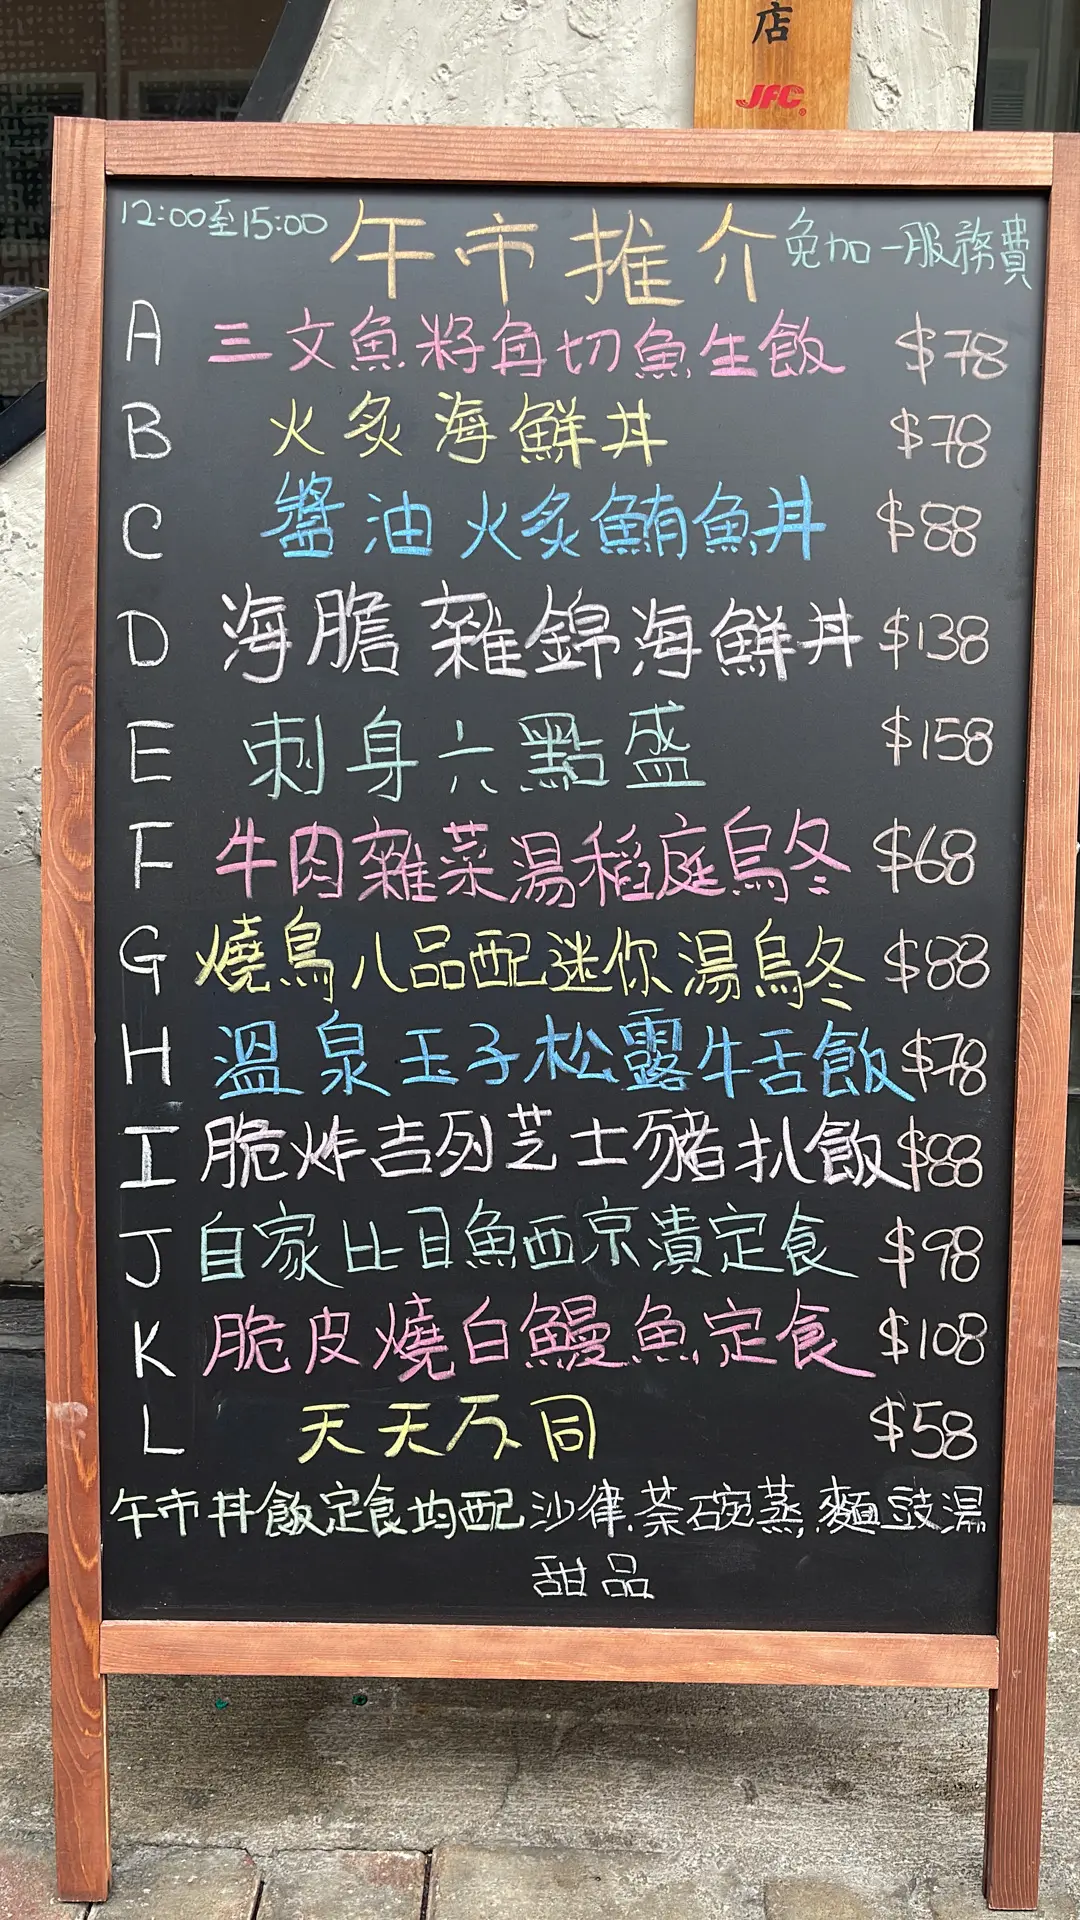 店
JFC
12:00至15:00 午市推介 免加一服務費
A 三文魚籽角切魚生飯 $78
B 火炙海鮮丼 $78
C 醬油火炙鮪魚丼 $88
D 海膽雜錦海鮮丼 $138
E 刺身六點盛 $158
F 牛肉雜菜湯稻庭烏冬 $68
G 燒鳥八品配迷你湯烏冬 $88
H 溫泉玉子松露牛舌飯 $78
I 脆炸吉列芝士豬扒飯 $88
J 自家比目魚西京漬定食 $98
K 脆皮燒白鰻魚定食 $108
L 天天不同 $58
午市丼飯定食均配沙律.茶碗蒸.麵豉湯
甜品